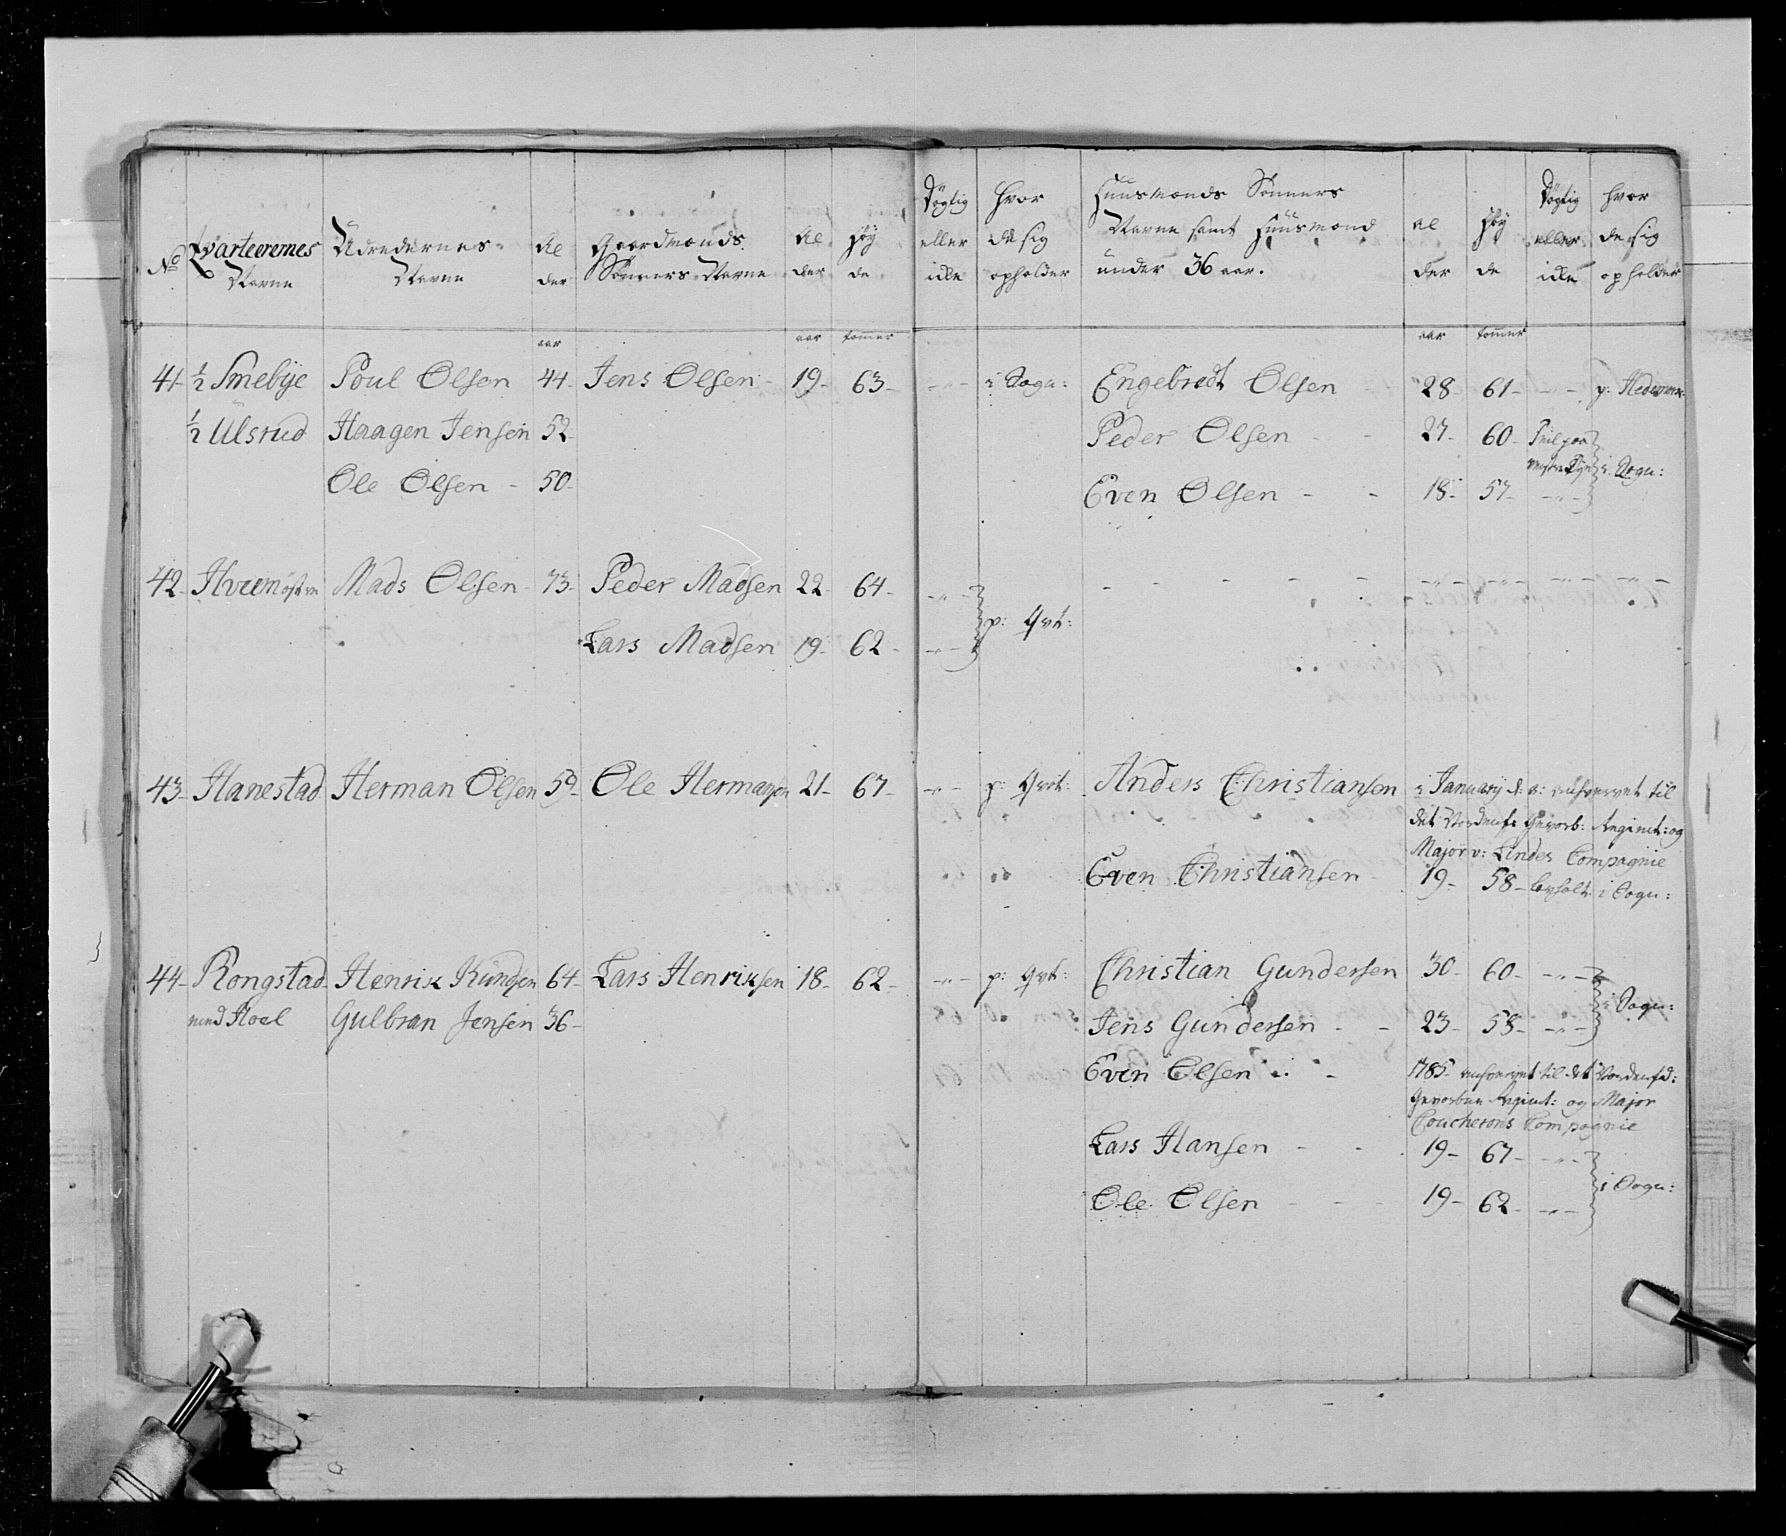 No Qvarteerernes Navne
Udredernes Navne
Alder
Gaardmænds Sønners Navne
Alder
Høyde
Dygtig eller icke
Hvor de sig opholder
Huusmænds Sønners
Navne samt Huusmænd
under 36 aar.
Alder
Høyde
Dygtig eller icke
Hvor de sig opholder
aar aar tommer aar tommer
41- ½ Smebye Poul Olsen 44- Jens Olsen- 19- 63- -"- i Sogn: Engebredt Olsen - 28- 61- -"- p: Hedemar:
½ Ulsrud Haagen Jensen 52- Peder Olsen - - 27- 60- i Sogn:
Ole Olsen - 50- Even Olsen - - 18- 57- -"-
42- Hveem østre Mads Olsen- 73- Peder Madsen 22- 64- -"- p: Qvt:
Lars Madsen 19- 62- -"-
43- Hanestad Herman Olsen 59- Ole Hermansen 21- 67- -"- p: Qvt: Anders Christiansen i January d: a: udskrevet til
det Nordenf: Gevorb: Regimt: og
Major v: Lindes Compagnie
Even Christiansen- 19- 58- i Sogn:
44- Rongstad Henrik Knudsen 64- Lars Henriksen 18- 62- -"- p: Qvt: Christian Gundersen 30- 60- -"- i Sogn:
med Hoel Gulbran Jensen 36- Jens Gundersen - - 23- 58- -"-
Even Olsen - 1785- udskrevet til det Nordenfd:
Gevorbne Regimt: og Major
Coucherons Compagnie
Lars Hansen - - 19- 67- -"- i Sogn:
Ole Olsen - - - 19- 62- -"-